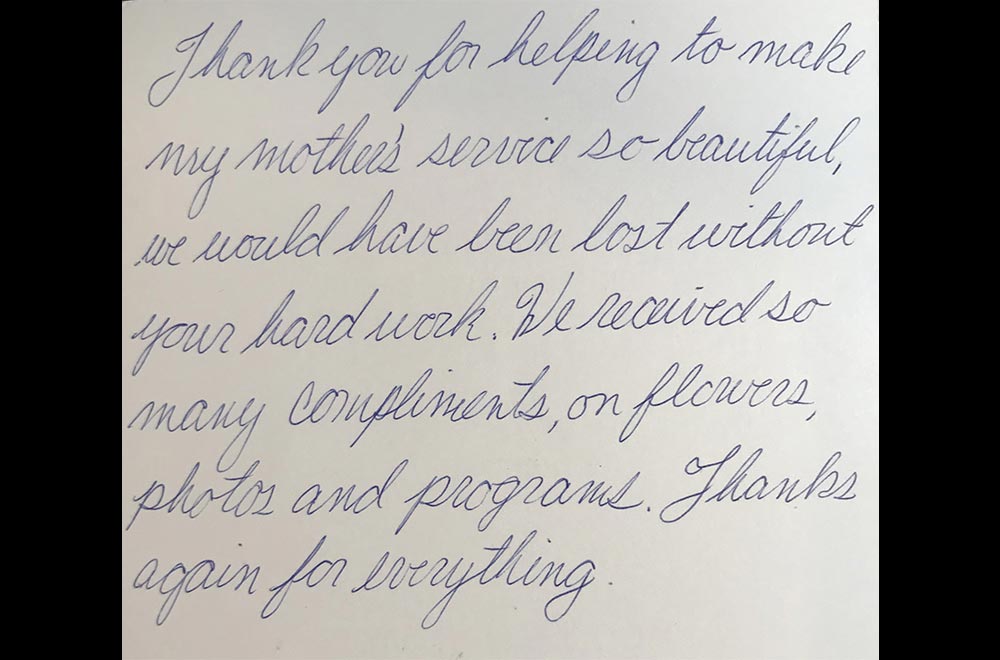 Thank you for helping to make
my mother's service so beautiful,
we would have been lost without
your hard work. We received so
many compliments, on flowers,
photos and programs. Thanks
again for everything.